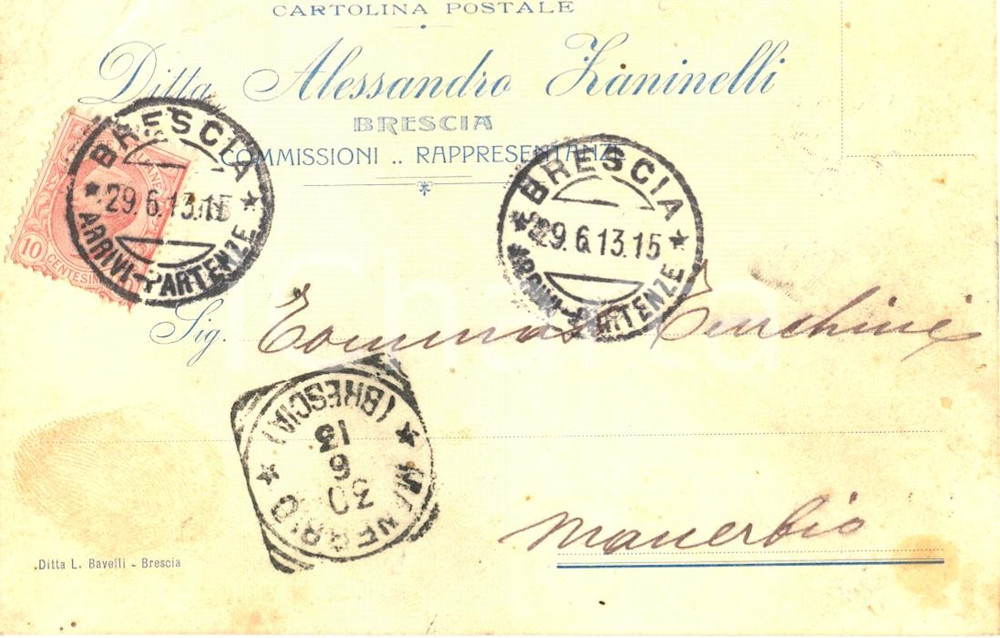 CARTOLINA POSTALE
Ditta Alessandro Zaninelli
BRESCIA
COMMISSIONI .. RAPPRESENTANZE
10 CENTESIMI
BRESCIA
29.6.13.15
ARRIVI-PARTENZE
BRESCIA
29.6.13.15
ARRIVI-PARTENZE
Sig. Tommaso
MANERBIO
30
6
13
(BRESCIA)
Manerbio
Ditta L. Bavelli - Brescia